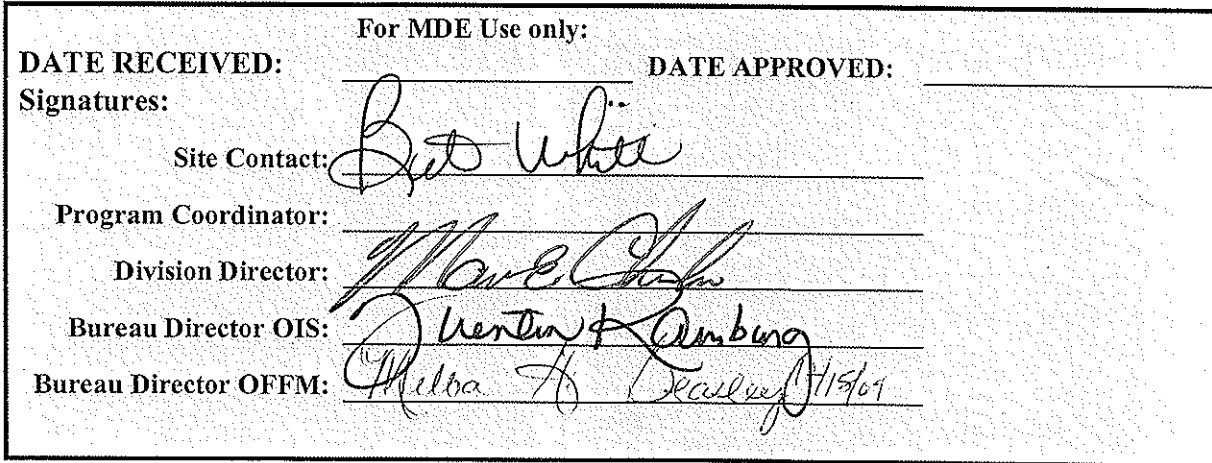 For MDE Use only:
DATE RECEIVED: DATE APPROVED:
Signatures:
Site Contact: White
Program Coordinator:
Division Director:
Bureau Director OIS: Quentin
Bureau Director OFFM: Melba